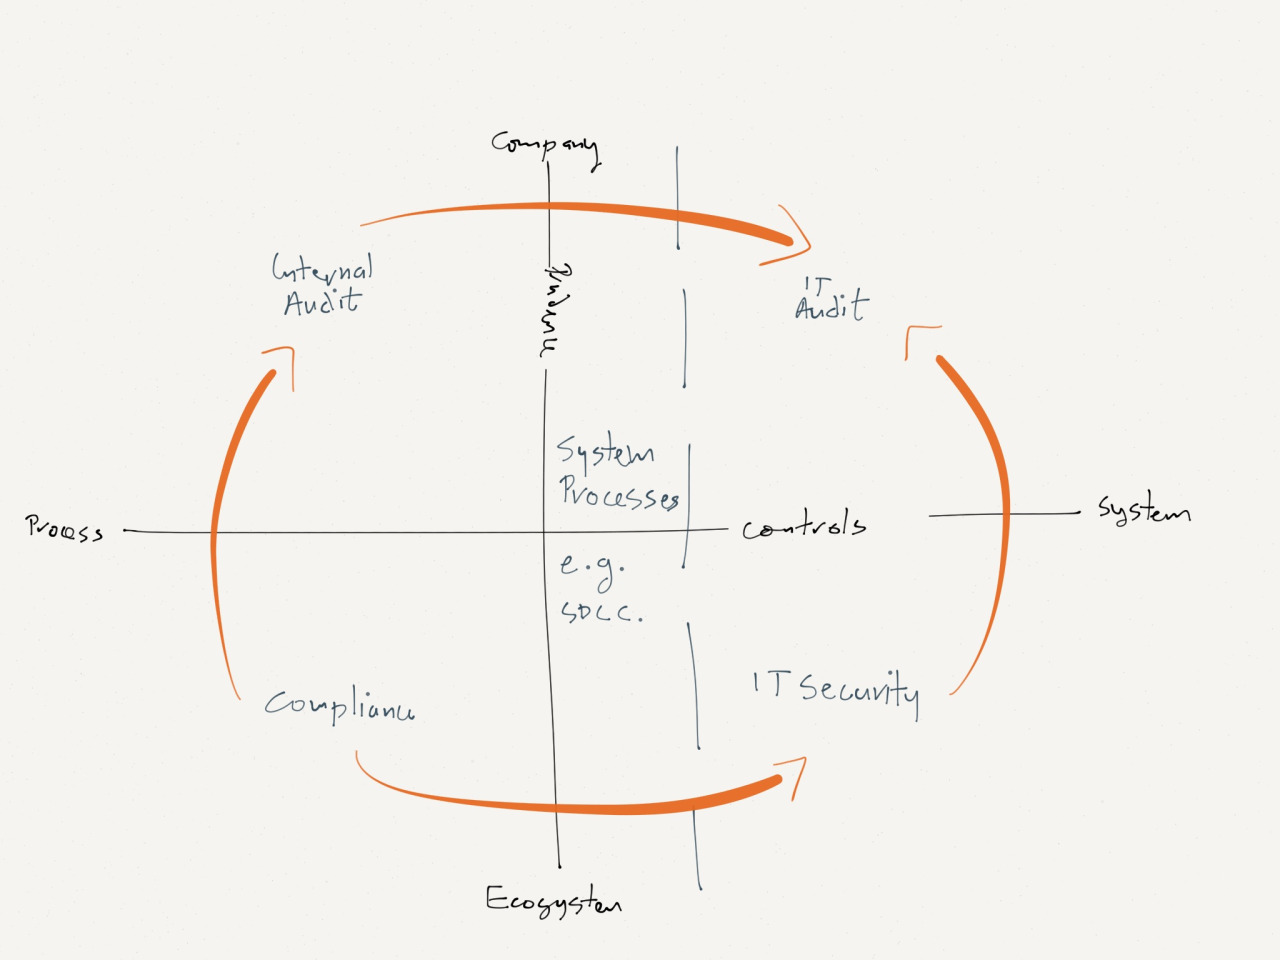 Company
Internal
Audit
Audience
IT
Audit
System
Processes
Process
controls
System
e.g.
SDLC.
Compliance
IT Security
Ecosystem